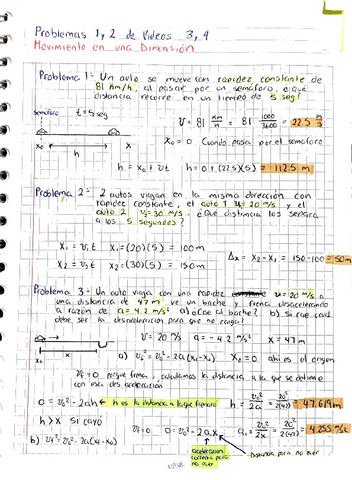 Problemas 1, 2 de Videos 3, 4
Movimiento en una Dimensión
Problema 1- Un auto se mueve con rapidez constante de
81 km/h, al pasar por un semáforo, ¿qué
distancia recorre en un tiempo de 5 seg?
semáforo t = 5 seg
V = 81 km/h = 81 1000/3600 = 22.5 m/s
x₀ h x
x₀ = 0 Cuando pasa por el semáforo
h = x₀ + vt h = 0 + (22.5)(5) = 112.5 m
Problema 2- 2 autos viajan en la misma dirección con
rapidez constante, el auto 1 V₁ = 20 m/s y el
auto 2 V₂ = 30 m/s. ¿Que distancia los separa
a los 5 segundos?
X₁ = V₁t X₁ = (20)(5) = 100 m
X₂ = V₂t X₂ = (30)(5) = 150 m
Δx = X₂ - X₁ = 150 - 100 = 50 m
Problema 3- Un auto viaja con una rapidez V = 20 m/s a
una distancia de 47 m ve un bache y frena desacelerando
a razón de a = 4.2 m/s² a) ¿Cae al bache? b) Si cae cual
debe ser la desaceleración para que no caiga?
V = 20 m/s a = -4.2 m/s² x = 47 m
a) V² = V₀² - 2a(x - x₀) x₀ = 0 ahi es el origen
Vf = 0 porque frena, calculamos la distancia a la que se detiene
con esa desaceleración
0 = V₀² - 2ah h es la distancia a la que frenara
h = V₀²/2a = 47.619 m
h > x Si cayó
b) Vf² = V₀² - 2a(x - x₀) Vf = 0 0 = V₀² - 2a x
4.255 m/s²
aceleración
para
no caer
Distancia para no caer